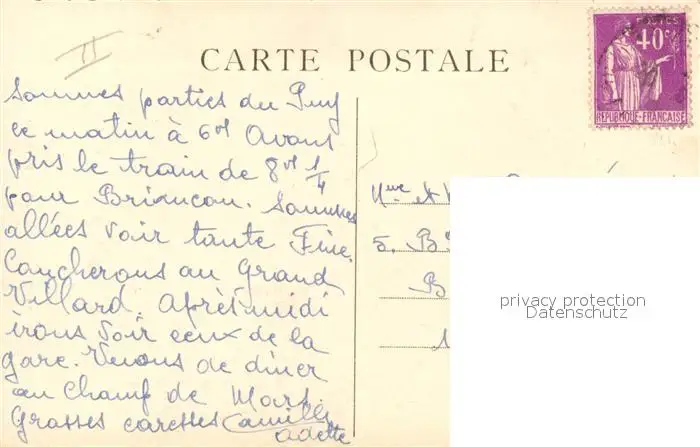 II
CARTE POSTALE
POSTES
40c
REPUBLIQUE-FRANÇAISE
Sommes parties du Puy
ce matin à 6h Avons
pris le train de 8h 1/4
pour Briancon. Sommes
allées voir tante Fine.
Coucherons au Grand
Villard. Après midi
irons voir ceux de la
gare. Venons de diner
au Champ de Mars.
Grosses caresses Camille
Odette
Mme et
5. B
B
1
privacy protection
Datenschutz